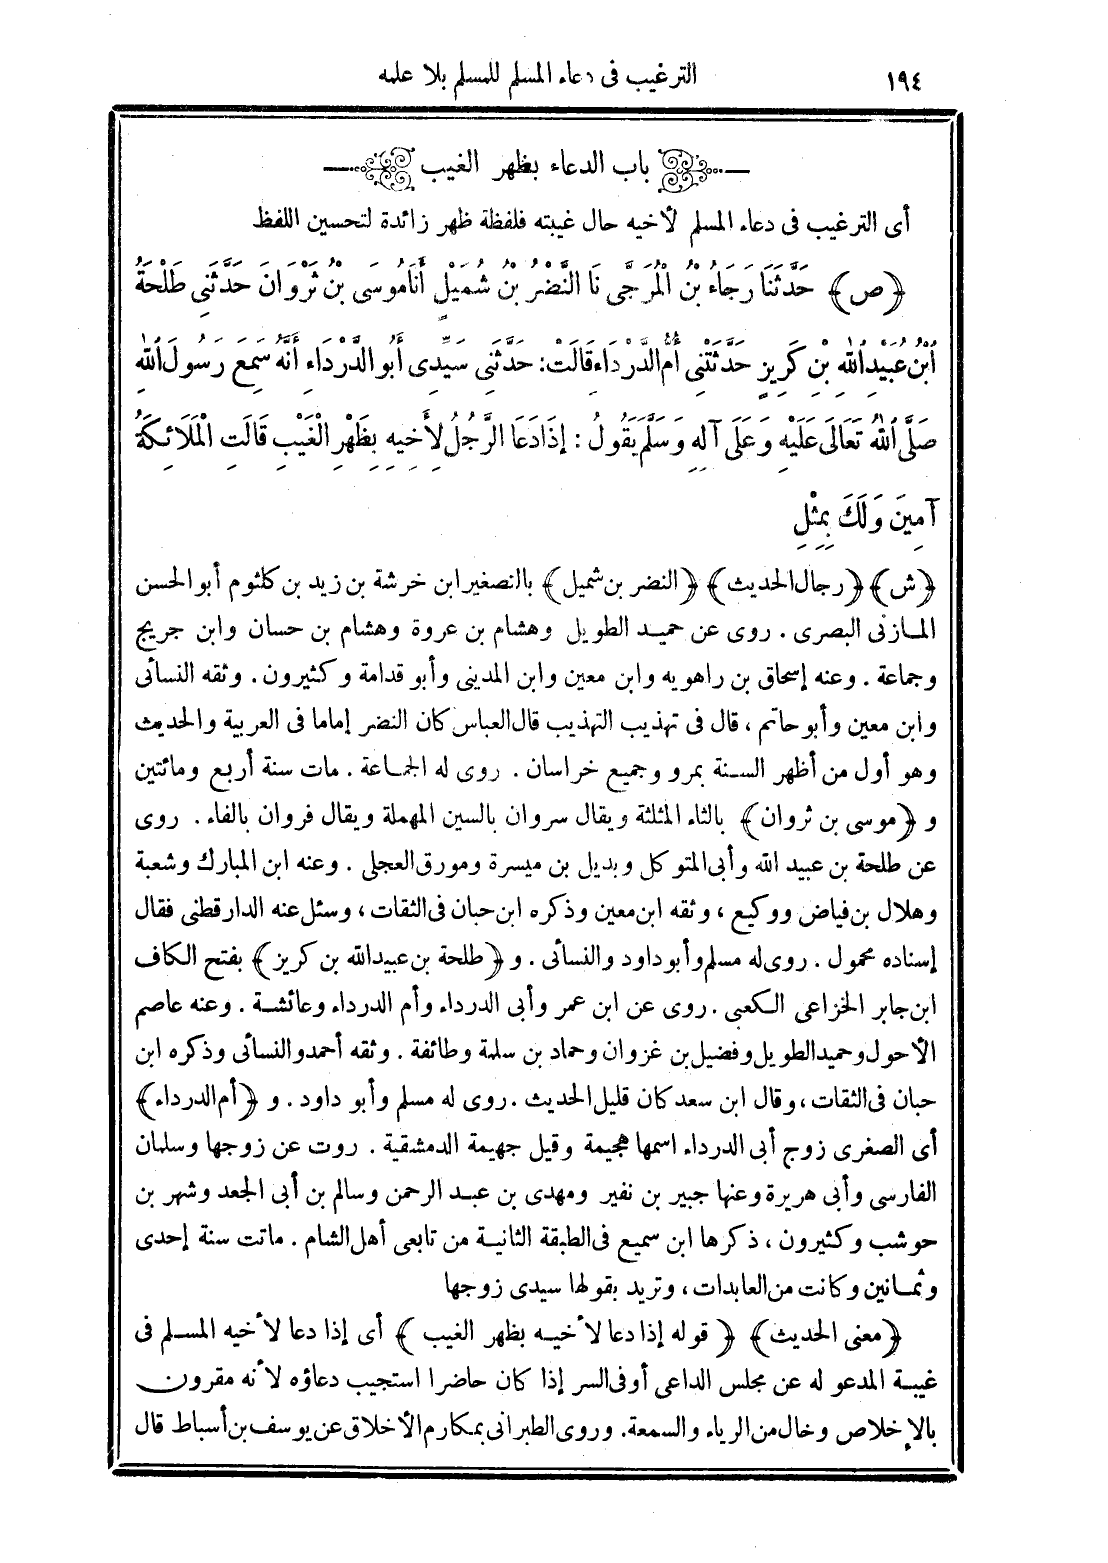 ١٩٤ الترغيب فى دعاء المسلم للمسلم بلا علمه
باب الدعاء بظهر الغيب
أى الترغيب فى دعاء المسلم لأخيه حال غيبته فلفظة ظهر زائدة لتحسين اللفظ
﴿ص﴾ حَدَّثَنَا رَجَاءُ بْنُ الْمُرَجَّى نَا النَّضْرُ بْنُ شُمَيْلٍ أَنَا مُوسَى بْنُ ثَرْوَانَ حَدَّثَنِى طَلْحَةُ
ابْنُ عُبَيْدِ اللهِ بْنِ كَرِيزٍ حَدَّثَتْنِى أُمُّ الدَّرْدَاءِ قَالَتْ: حَدَّثَنِى سَيِّدِى أَبُو الدَّرْدَاءِ أَنَّهُ سَمِعَ رَسُولَ اللهِ
صَلَّى اللهُ تَعَالَى عَلَيْهِ وَعَلَى آلِهِ وَسَلَّمَ يَقُولُ : إِذَا دَعَا الرَّجُلُ لِأَخِيهِ بِظَهْرِ الْغَيْبِ قَالَتِ الْمَلَائِكَةُ
آمِينَ وَلَكَ بِمِثْلٍ
﴿ش﴾ ﴿رجال الحديث﴾ ﴿النضر بن شميل﴾ بالتصغير ابن خرشة بن زيد بن كلثوم أبو الحسن
المازنى البصرى . روى عن حميد الطويل وهشام بن عروة وهشام بن حسان وابن جريج
وجماعة . وعنه إسحاق بن راهويه وابن معين وابن المدينى وأبو قدامة وكثيرون . وثقه النسائى
وابن معين وأبو حاتم ، قال فى تهذيب التهذيب قال العباس كان النضر إماما فى العربية والحديث
وهو أول من أظهر السنة بمرو وجميع خراسان . روى له الجماعة . مات سنة أربع ومائتين
و ﴿موسى بن ثروان﴾ بالثاء المثلثة ويقال سروان بالسين المهملة ويقال فروان بالفاء . روى
عن طلحة بن عبيد الله وأبى المتوكل وبديل بن ميسرة ومورق العجلى . وعنه ابن المبارك وشعبة
وهلال بن فياض ووكيع ، وثقه ابن معين وذكره ابن حبان فى الثقات ، وسئل عنه الدارقطنى فقال
إسناده محمول . روى له مسلم وأبو داود والنسائى . و ﴿طلحة بن عبيد الله بن كريز﴾ بفتح الكاف
ابن جابر الخزاعى الكعبى . روى عن ابن عمر وأبى الدرداء وأم الدرداء وعائشة . وعنه عاصم
الأحول وحميد الطويل وفضيل بن غزوان وحماد بن سلمة وطائفة . وثقه أحمد والنسائى وذكره ابن
حبان فى الثقات ، وقال ابن سعد كان قليل الحديث . روى له مسلم وأبو داود . و ﴿أم الدرداء﴾
أى الصغرى زوج أبى الدرداء اسمها هجيمة وقيل جهيمة الدمشقية . روت عن زوجها وسلمان
الفارسى وأبى هريرة وعنها جبير بن نفير ومهدى بن عبد الرحمن وسالم بن أبى الجعد وشهر بن
حوشب وكثيرون ، ذكرها ابن سميع فى الطبقة الثانية من تابعى أهل الشام . ماتت سنة إحدى
وثمانين وكانت من العابدات ، وتريد بقولها سيدى زوجها
﴿معنى الحديث﴾ ﴿ قوله إذا دعا لأخيه بظهر الغيب ﴾ أى إذا دعا لأخيه المسلم فى
غيبة المدعو له عن مجلس الداعى أو فى السر إذا كان حاضرا استجيب دعاؤه لأنه مقرون
بالإخلاص وخال من الرياء والسمعة . وروى الطبرانى بمكارم الأخلاق عن يوسف بن أسباط قال